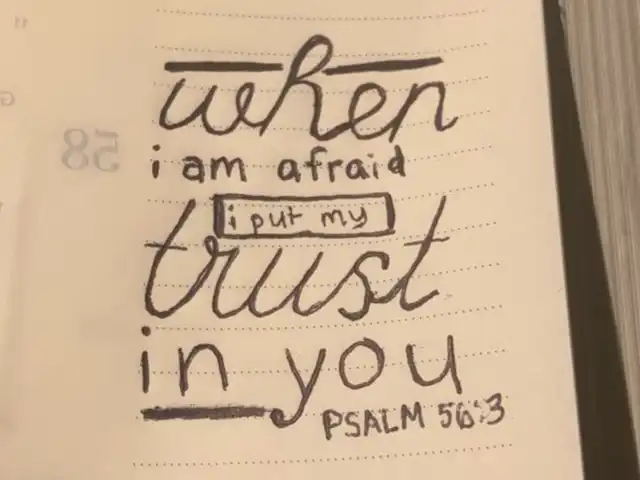 when
i am afraid
i put my
trust
in you
PSALM 56:3
58